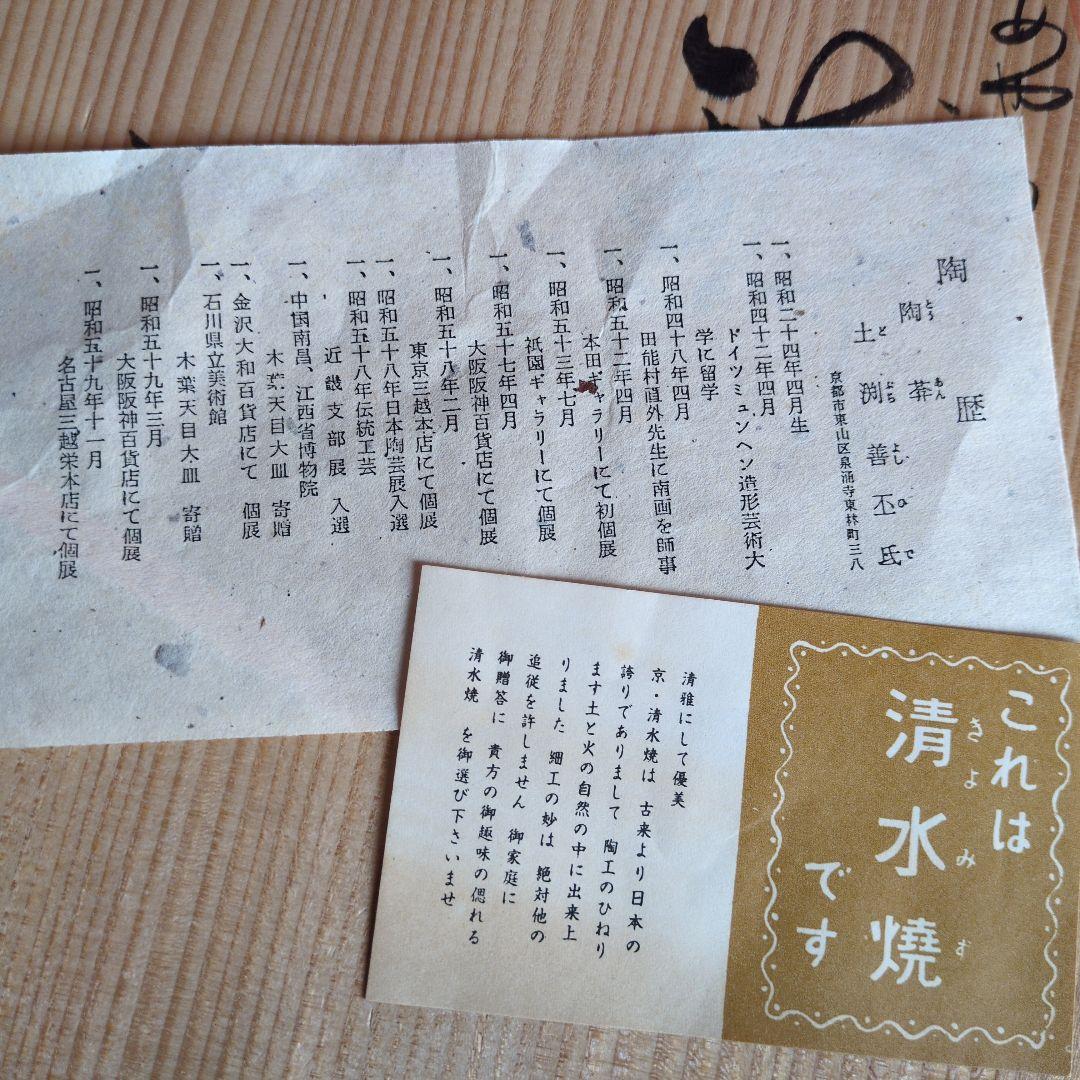 陶歴
陶荅
とうあん
土渕善丕氏
とどちよしので
京都市東山区泉涌寺東林町三八
一、昭和二十四年四月生
一、昭和四十二年四月
ドイツミュンヘン造形芸術大
学に留学
一、昭和四十八年四月
田能村直外先生に南画を師事
一、昭和五十二年四月
本田ギャラリーにて初個展
一、昭和五十三年七月
祇園ギャラリーにて個展
一、昭和五十七年四月
大阪阪神百貨店にて個展
一、昭和五十八年二月
東京三越本店にて個展
一、昭和五十八年日本陶芸展入選
一、昭和五十八年伝統工芸
近畿支部展 入選
一、中国南昌、江西省博物院
木葉天目大皿 寄贈
一、金沢大和百貨店にて 個展
一、石川県立美術館
木葉天目大皿 寄贈
一、昭和五十九年三月
大阪阪神百貨店にて個展
一、昭和五十九年十一月
名古屋三越栄本店にて個展
これは
清水焼
きよみず
です
清雅にして優美
京・清水焼は 古来より日本の
誇りでありまして 陶工のひねり
ます土と火の自然の中に出来上
りました 細工の妙は 絶対他の
追従を許しません 御家庭に
御贈答に 貴方の御趣味の偲れる
清水焼 を御選び下さいませ